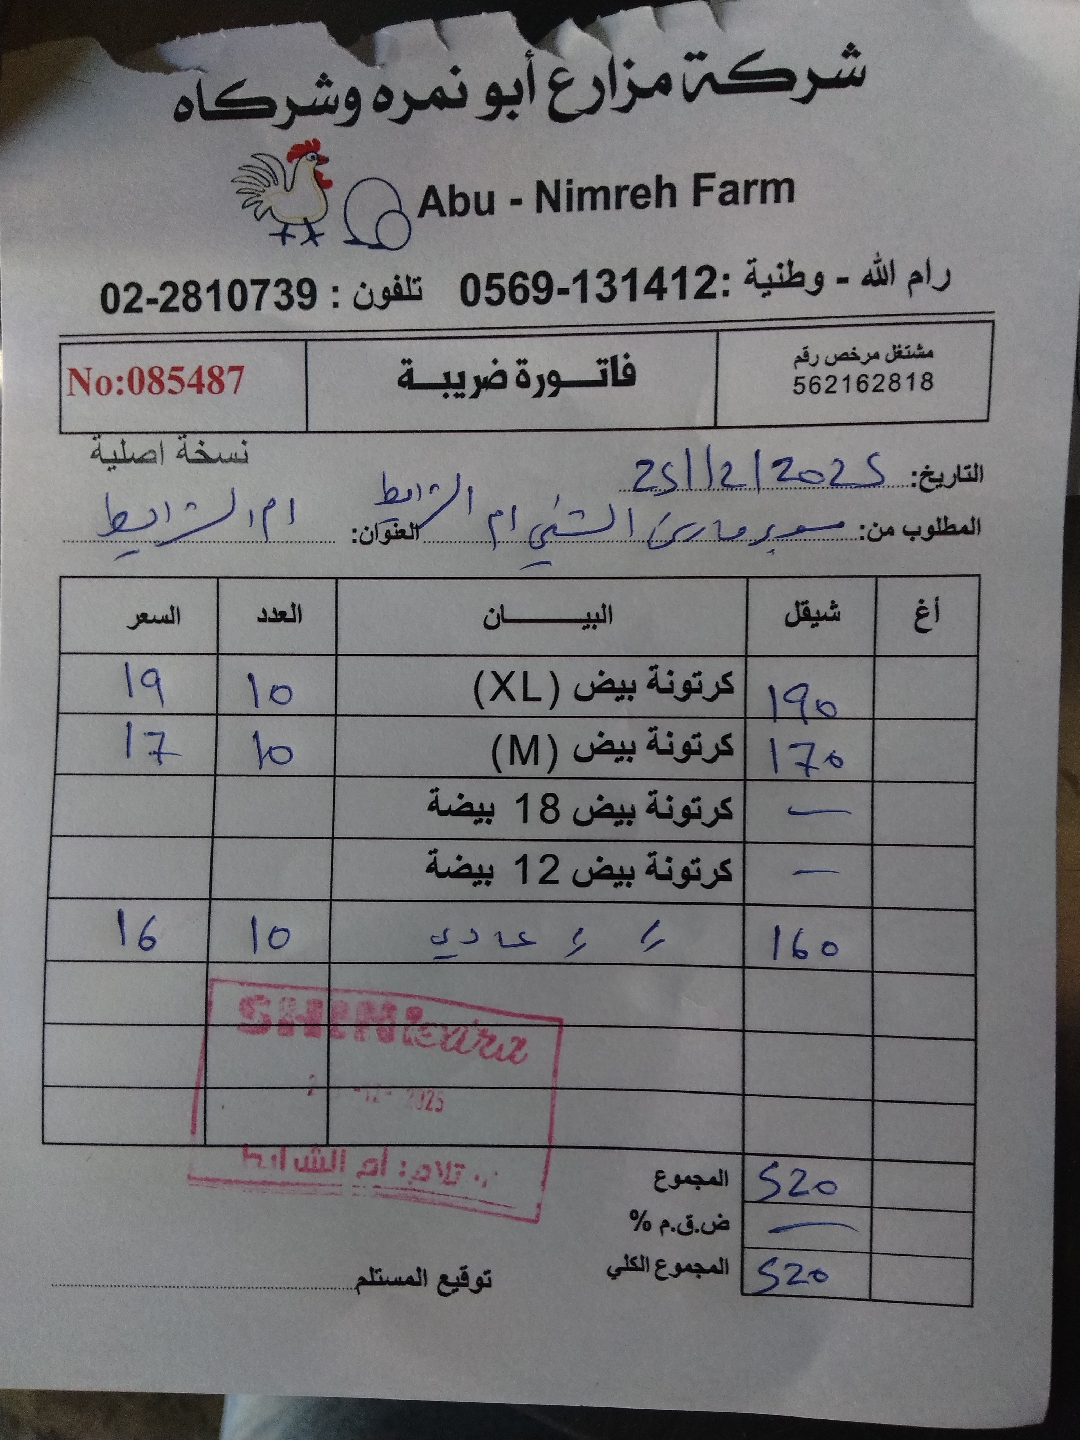 شركة مزارع أبو نمره وشركاه
Abu - Nimreh Farm
رام الله - وطنية :0569-131412 تلفون : 02-2810739
مشتغل مرخص رقم
562162818
فاتورة ضريبة
No:085487
نسخة اصلية
التاريخ: 25/12/2025
المطلوب من: سوبر ماركت الشني ام الشرايط العنوان: ام الشرايط
أغ شيقل البيان العدد السعر
190 كرتونة بيض (XL) 10 19
170 كرتونة بيض (M) 10 17
— كرتونة بيض 18 بيضة
— كرتونة بيض 12 بيضة
160 // // عادي 10 16
SHINI extra
2025
ام الشرايط
المجموع 520
ض.ق.م % —
المجموع الكلي 520
توقيع المستلم